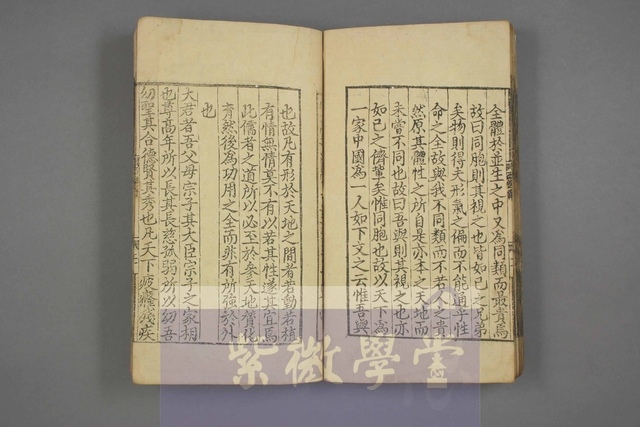 全體於並生之中又為同類而最貴焉
故曰同胞則其視之也皆如己之兄弟
矣物則得夫形氣之偏而不能通乎性
命之全故與我不同類而不若人之貴
然原其體性之所自是亦本之天地而
未嘗不同也故曰吾與則其視之也亦
如己之儕輩矣惟同胞也故以天下為
一家中國為一人如下文之云惟吾與
也故凡有形於天地之間者若動若植
有情無情莫不有以若其性遂其宜焉
此儒者之道所以必至於參天地贊化
育然後為功用之全而非有所強於外
也
大君者吾父母宗子其大臣宗子之家相
也尊高年所以長其長慈孤弱所以幼吾
幼聖其合德賢其秀也凡天下疲癃殘疾
紫微學堂